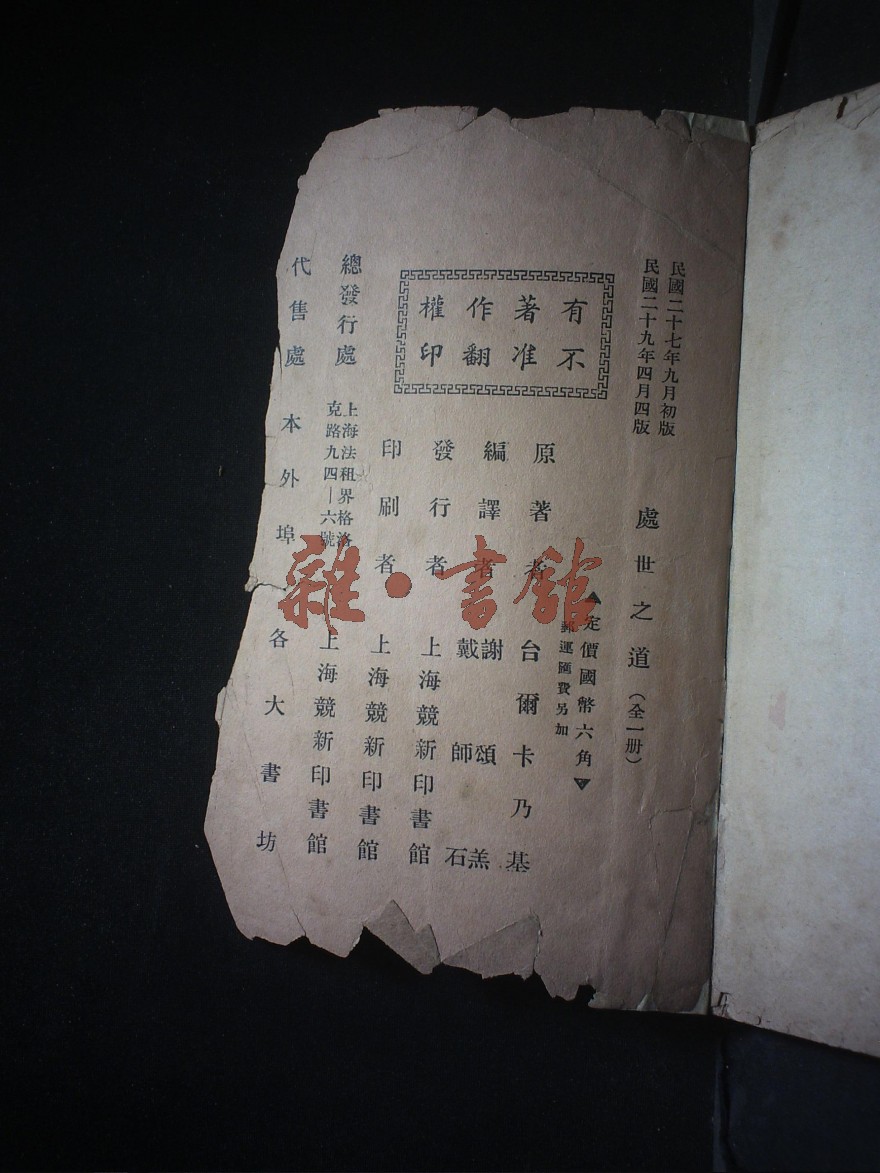 民國二十七年九月初版
民國二十九年四月四版
處世之道（全一册）
▲定價國幣六角▼
郵運匯費另加
有著作權
不准翻印
原著者 台爾卡乃基
編譯者 謝頌羔
戴師石
發行者 上海競新印書館
印刷者 上海競新印書館
總發行處 上海法租界格洛克路九四—六號 上海競新印書館
代售處 本外埠各大書坊
雜·書館